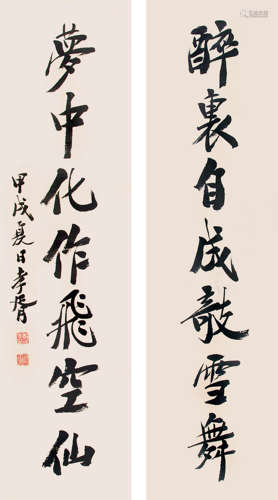 醉裏自成敲雪舞
夢中化作飛空仙
甲戌夏日孝胥